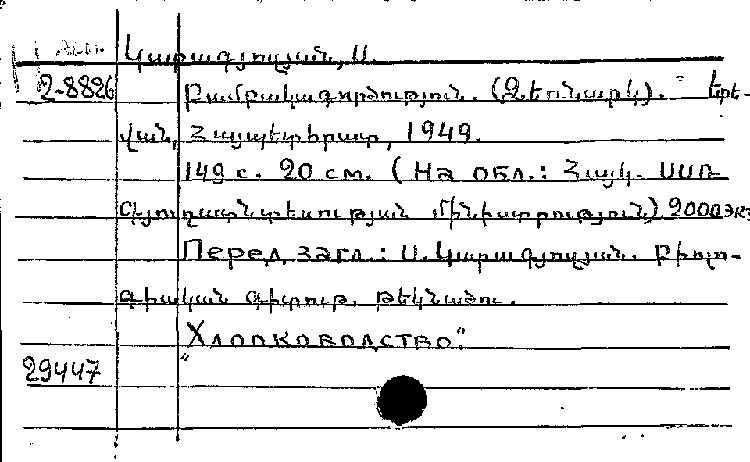 Կարագյոզյան, Ս.
2-8826 Բամբակագործություն. (Ձեռնարկ). Երե-
վան, Հայպետհրատ, 1949.
149 с. 20 см. (На обл.: Հայկ. ՍՍՌ
Գյուղատնտեսության մինիստրություն) 2000 экз
Перед загл.: Ս. Կարագյոզյան. Բիոլո-
գիական գիտութ. թեկնածու.
"Хлопководство".
29447